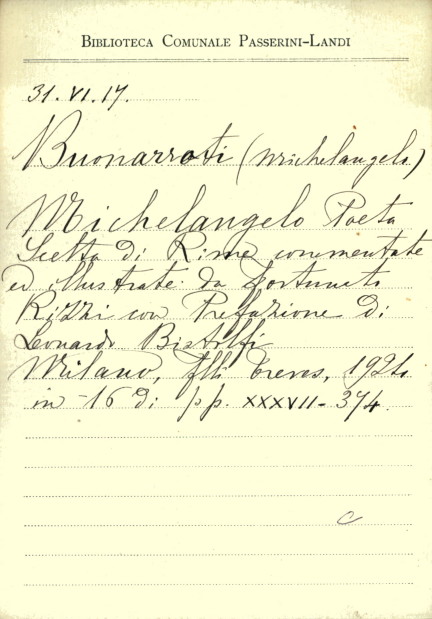 BIBLIOTECA COMUNALE PASSERINI-LANDI
31. VI. 17.
Buonarroti (Michelangelo)
Michelangelo Poeta
Scelta di Rime commentate
ed illustrate da Fortunato
Rizzi con Prefazione di
Leonardo Bistolfi
Milano, flli Treves, 1924
in 16 di pp. XXXVII-374.
c